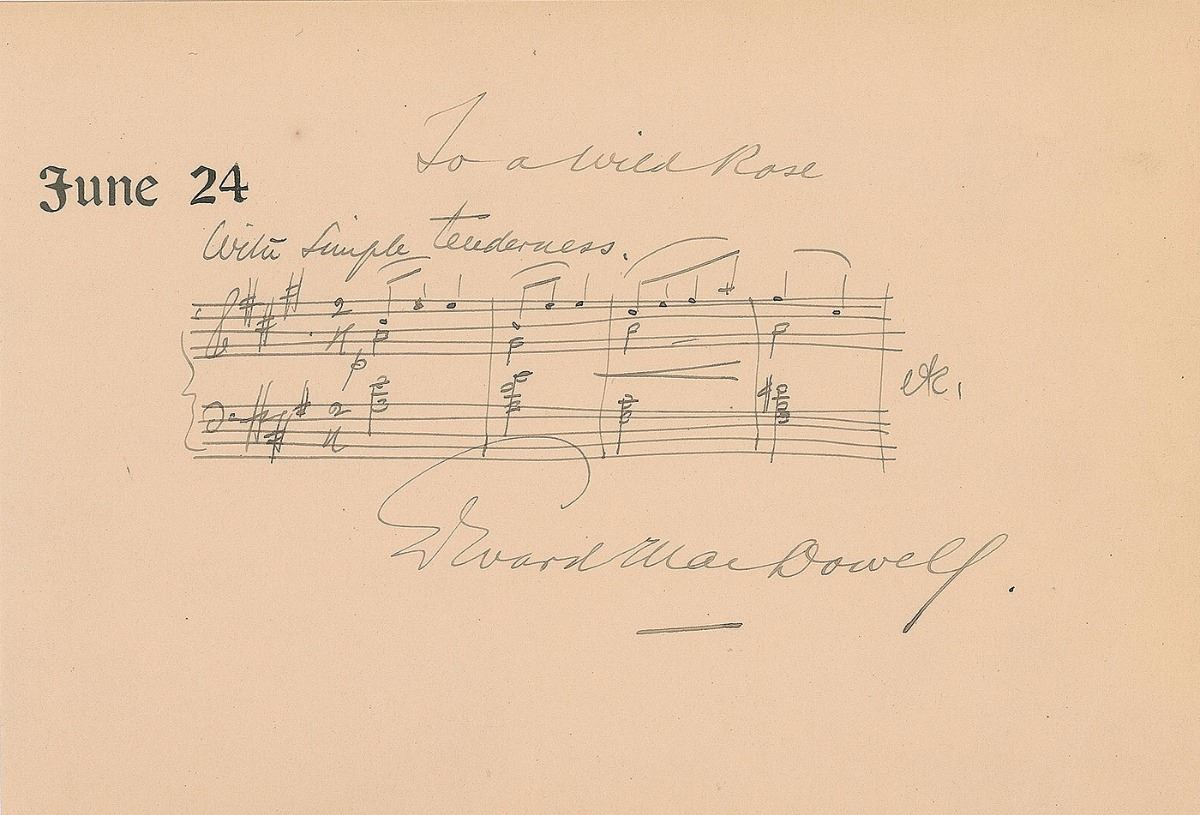 June 24
To a Wild Rose
With simple tenderness.
2
4
p
2
4
etc.
Edward MacDowell.